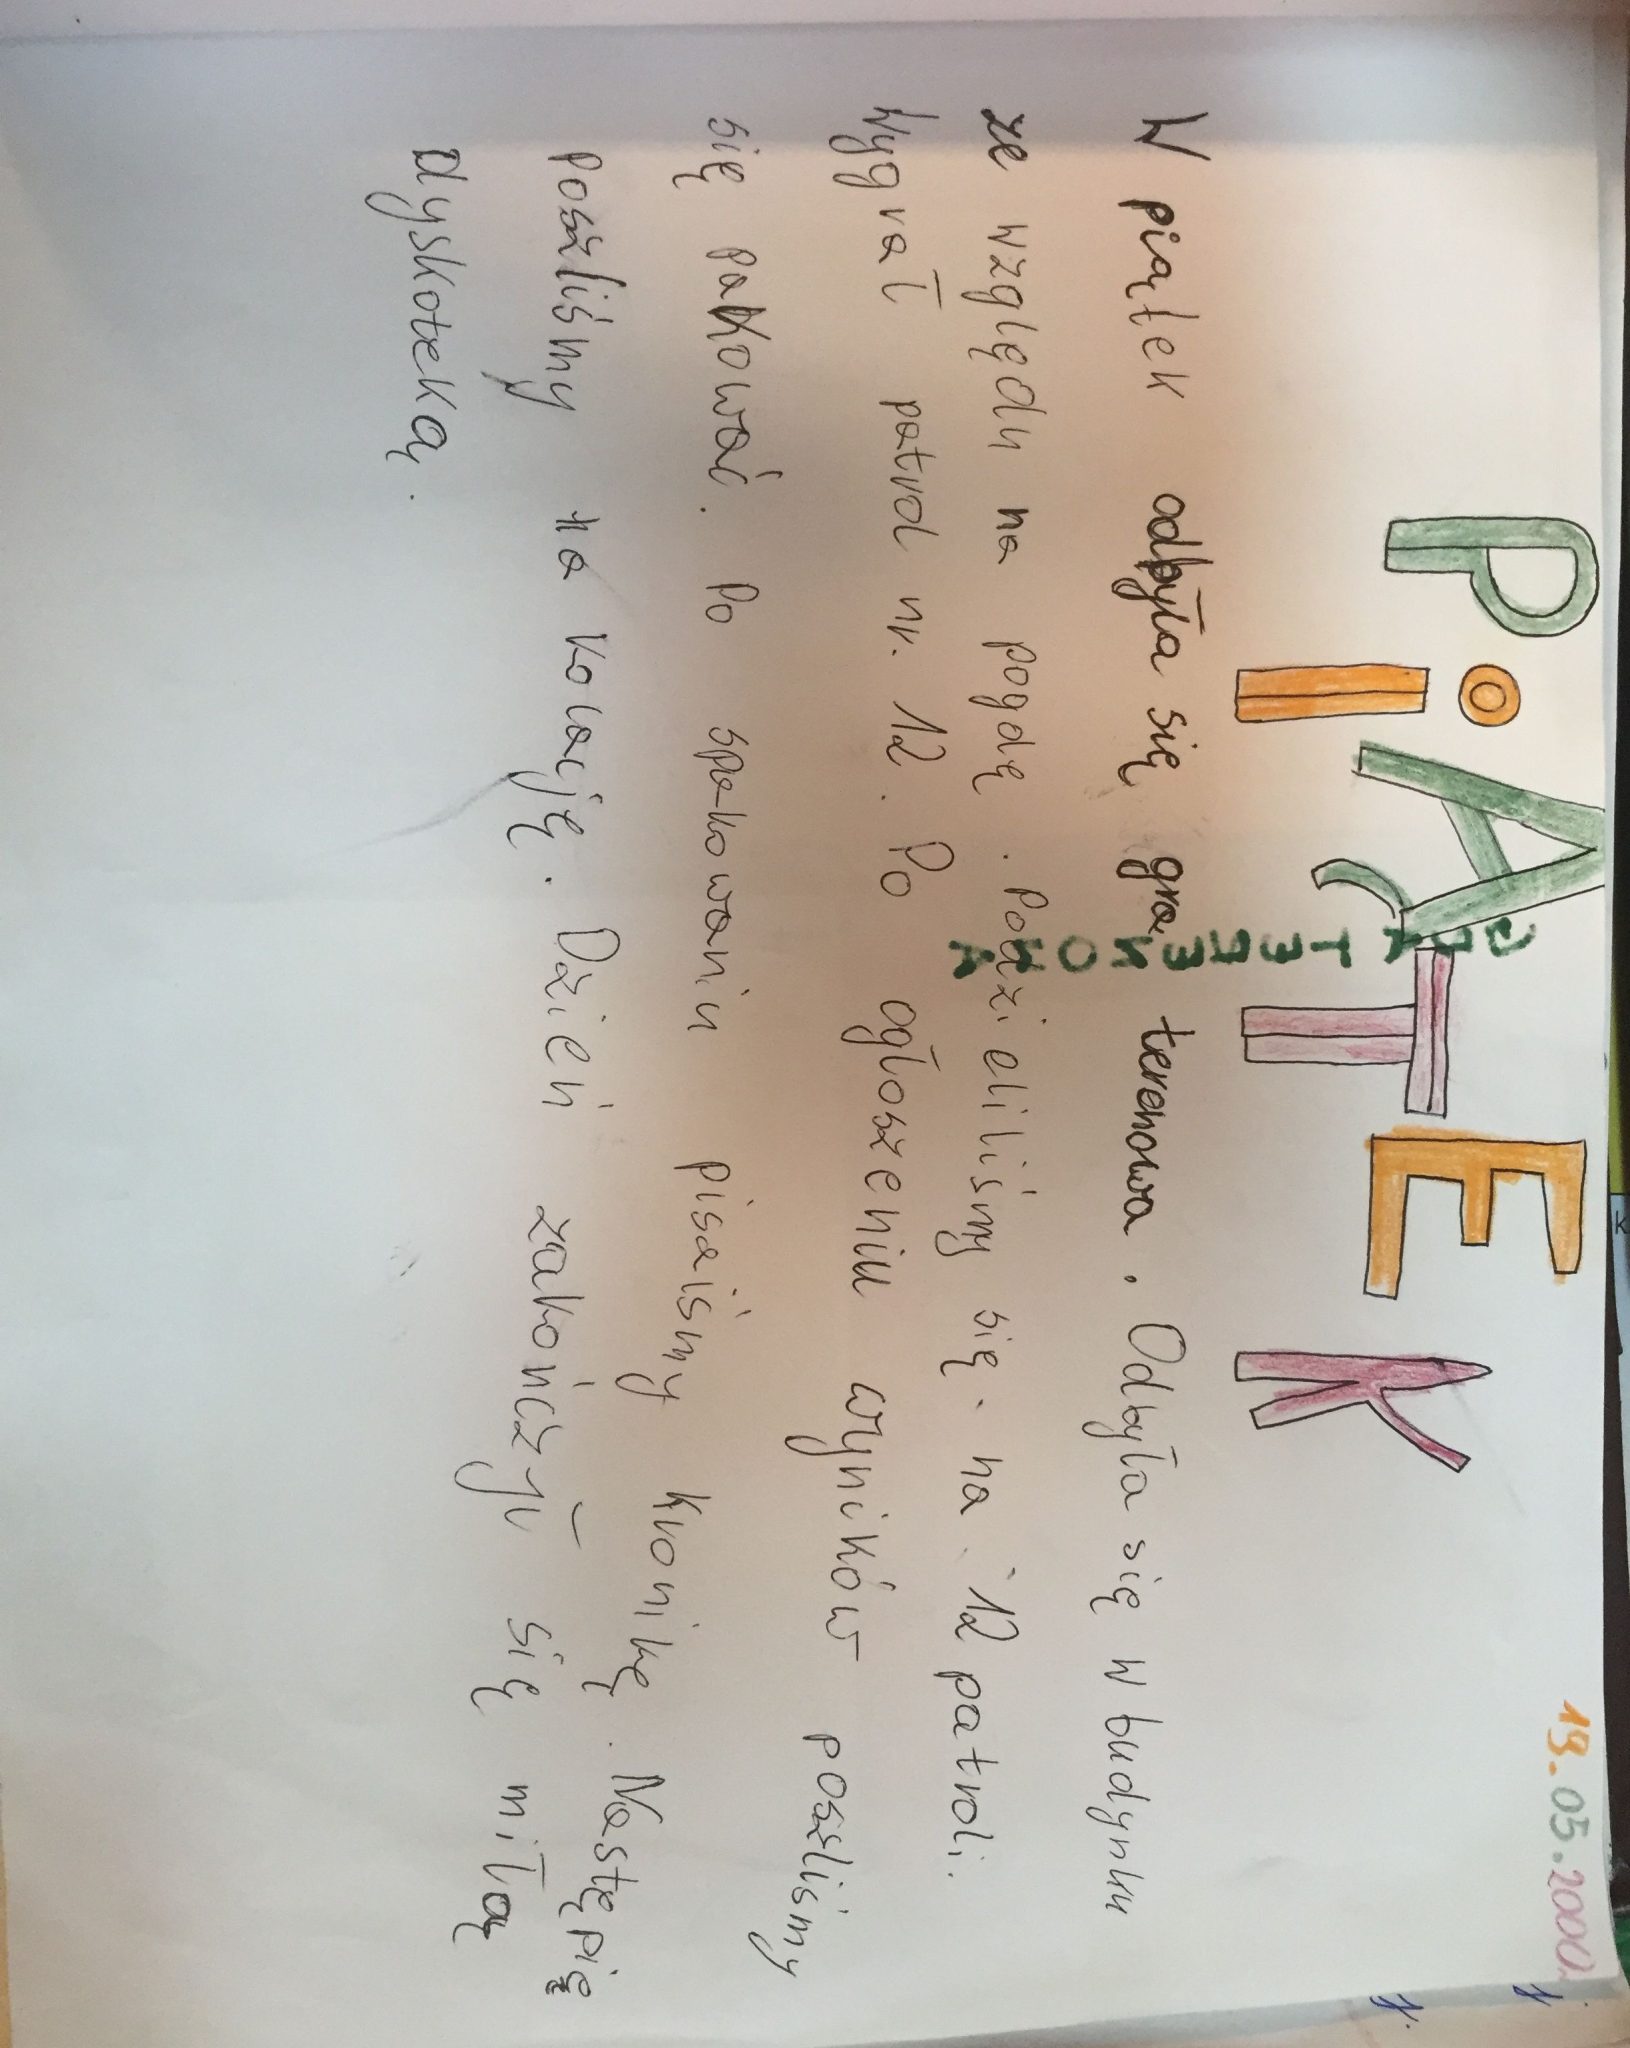 19.05.2000
PiĄTEK
W piątek odbyła się gra terenowa. Odbyła się w budynku
ze względu na pogdę. Podzieliliśmy się na 12 patroli.
Wygrał patrol nr. 12. Po ogłoszeniu wyników poszlismy
się pakować. Po spakowaniu pisaiśmy kronikę. Nastepię
poszliśmy na kolację. Dzień zakończył się miłą
dyskoteką.